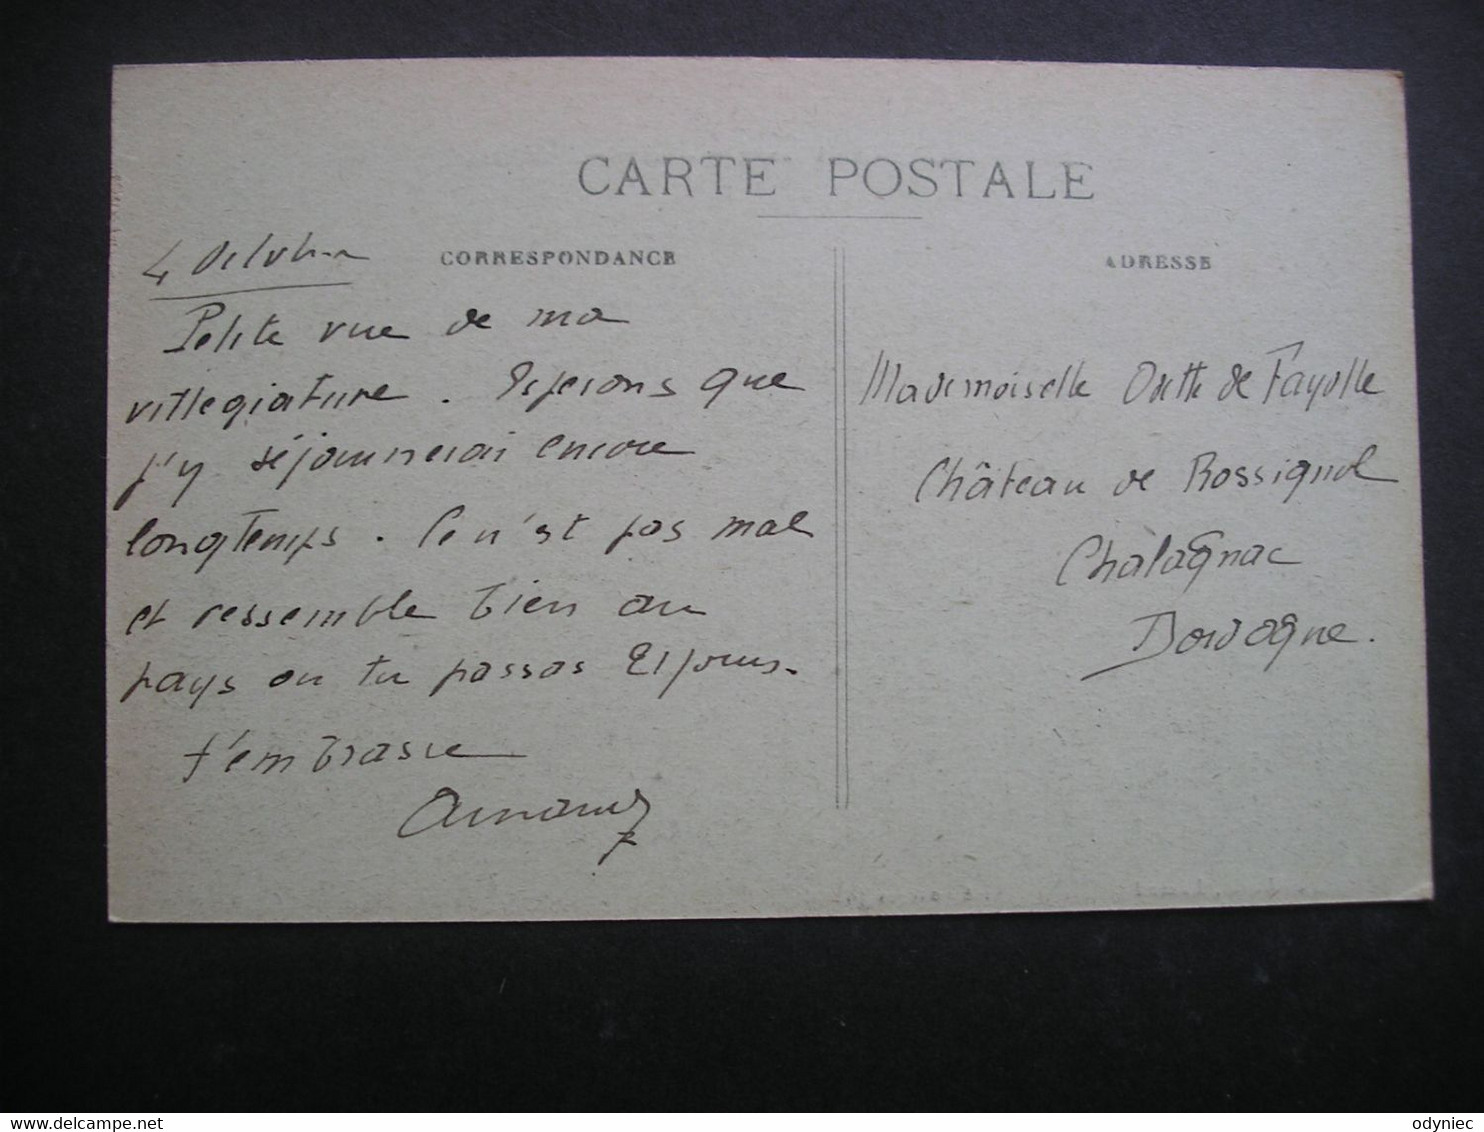 CARTE POSTALE
CORRESPONDANCE
ADRESSE
4 Octobre
Petite vue de ma
villegiature. Esperons que
j'y séjournerai encore
longtemps. Ce n'est pas mal
et ressemble bien au
pays ou tu passas 21 jours.
t'embrasse
Arnaud
Mademoiselle Odette de Fayolle
Château de Rossignol
Chalagnac
Dordogne.
odyniec